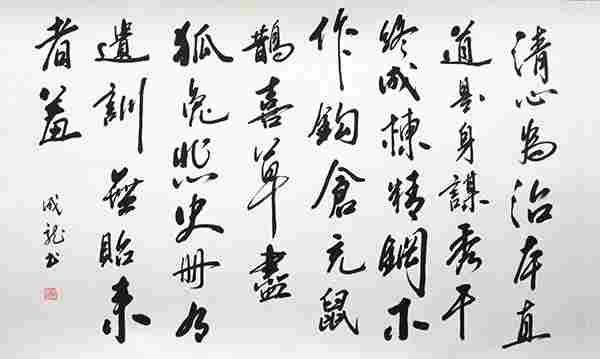 清心為治本直
道是身謀秀干
終成棟精鋼不
作鈎倉充鼠
鵲喜草盡
狐兔悲史冊有
遺訓無貽来
者羞
成龍书